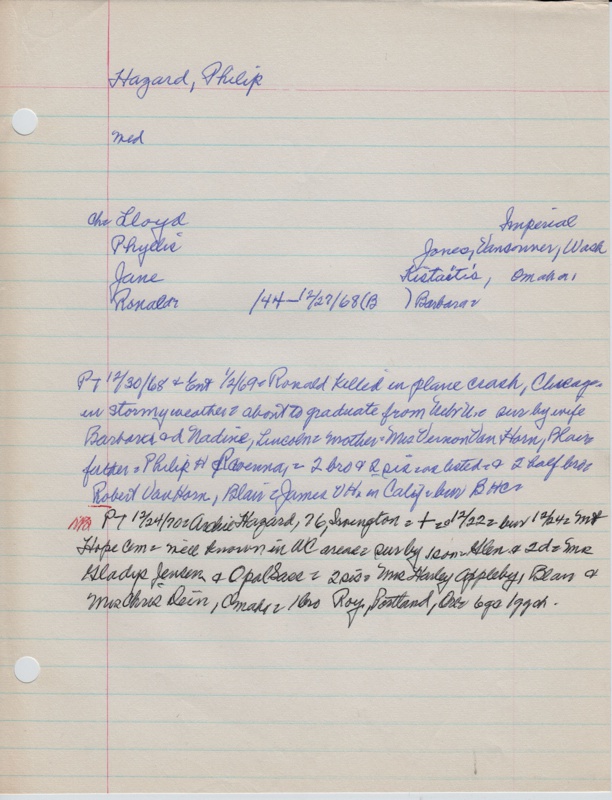 Hazard, Philip
med
ch= Lloyd Imperial
Phyllis Jones, Vancouver, Wash
Jane Omaha,
Ronald= /44-12/27/68(B ) Barbara=
PT 12/30/68 & Ent 1/2/69= Ronald killed in plane crash, Chicago=
in stormy weather= about to graduate from Neb U.= sur by wife
Barbara= d Nadine, Lincoln= mother= Mrs Vernon Van Horn, Blair=
father= Philip H Ravenna,= 2 bro & 2 sis= as listed= & 2 half bros
Robert Van Horn, Blair= James VH= in Calif= bur B HC=
PT 12/24/70= Archie Hazard, 76, Irvington= + = 12/22= bur 12/24= Mt
Hope Cm= well known in WC area= sur by 1 son= Glen & 2d= Mrs
Gladys Jensen & Opal Sass= 2 sis= Mrs Harley Appleby, Blair &
Mrs Chris Dein, Omaha= 1 bro Roy, Portland, Ore= 6gc 1ggch.